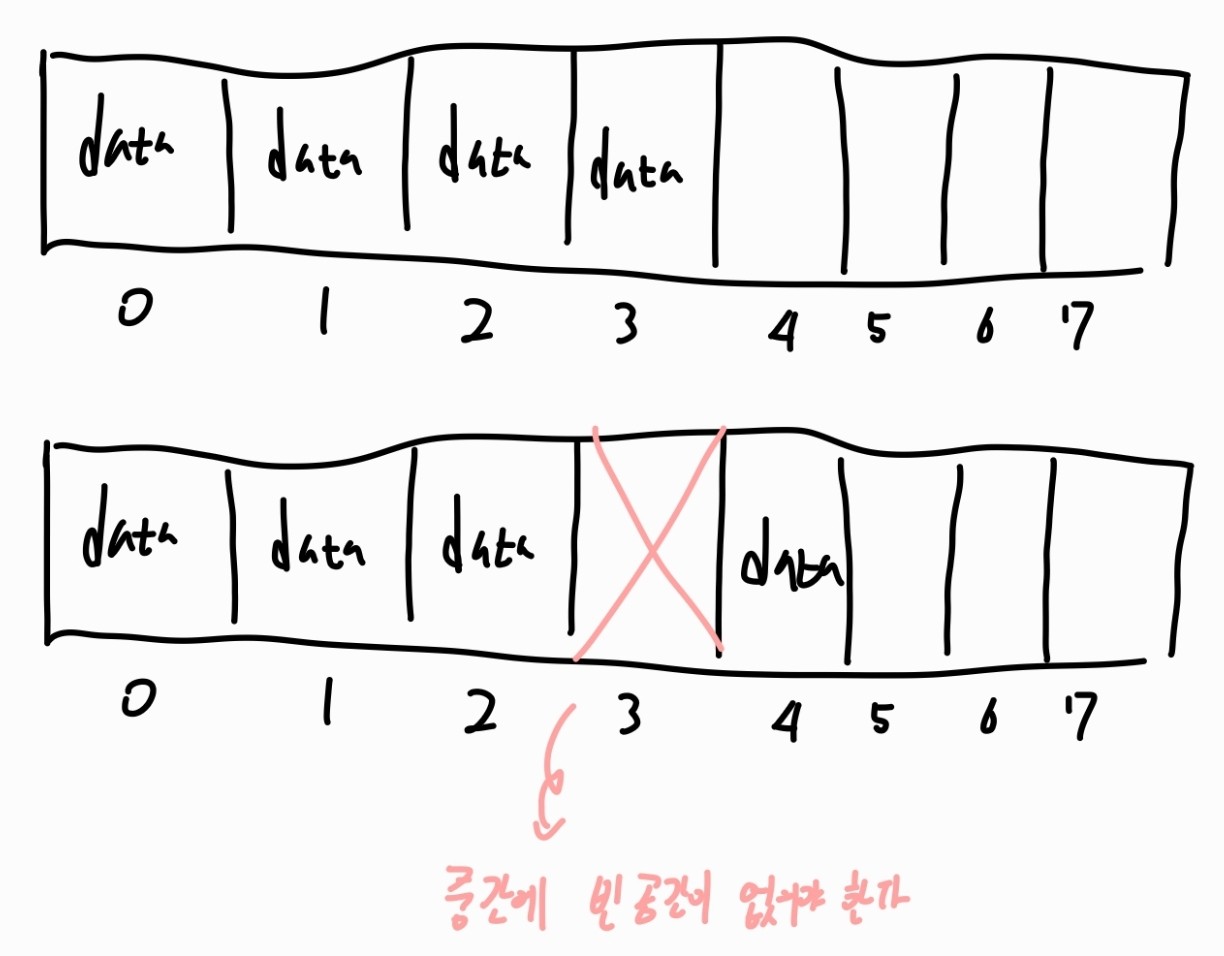 data data data data
0 1 2 3 4 5 6 7
data data data data
0 1 2 3 4 5 6 7
중간에 빈공간이 없어야 한다